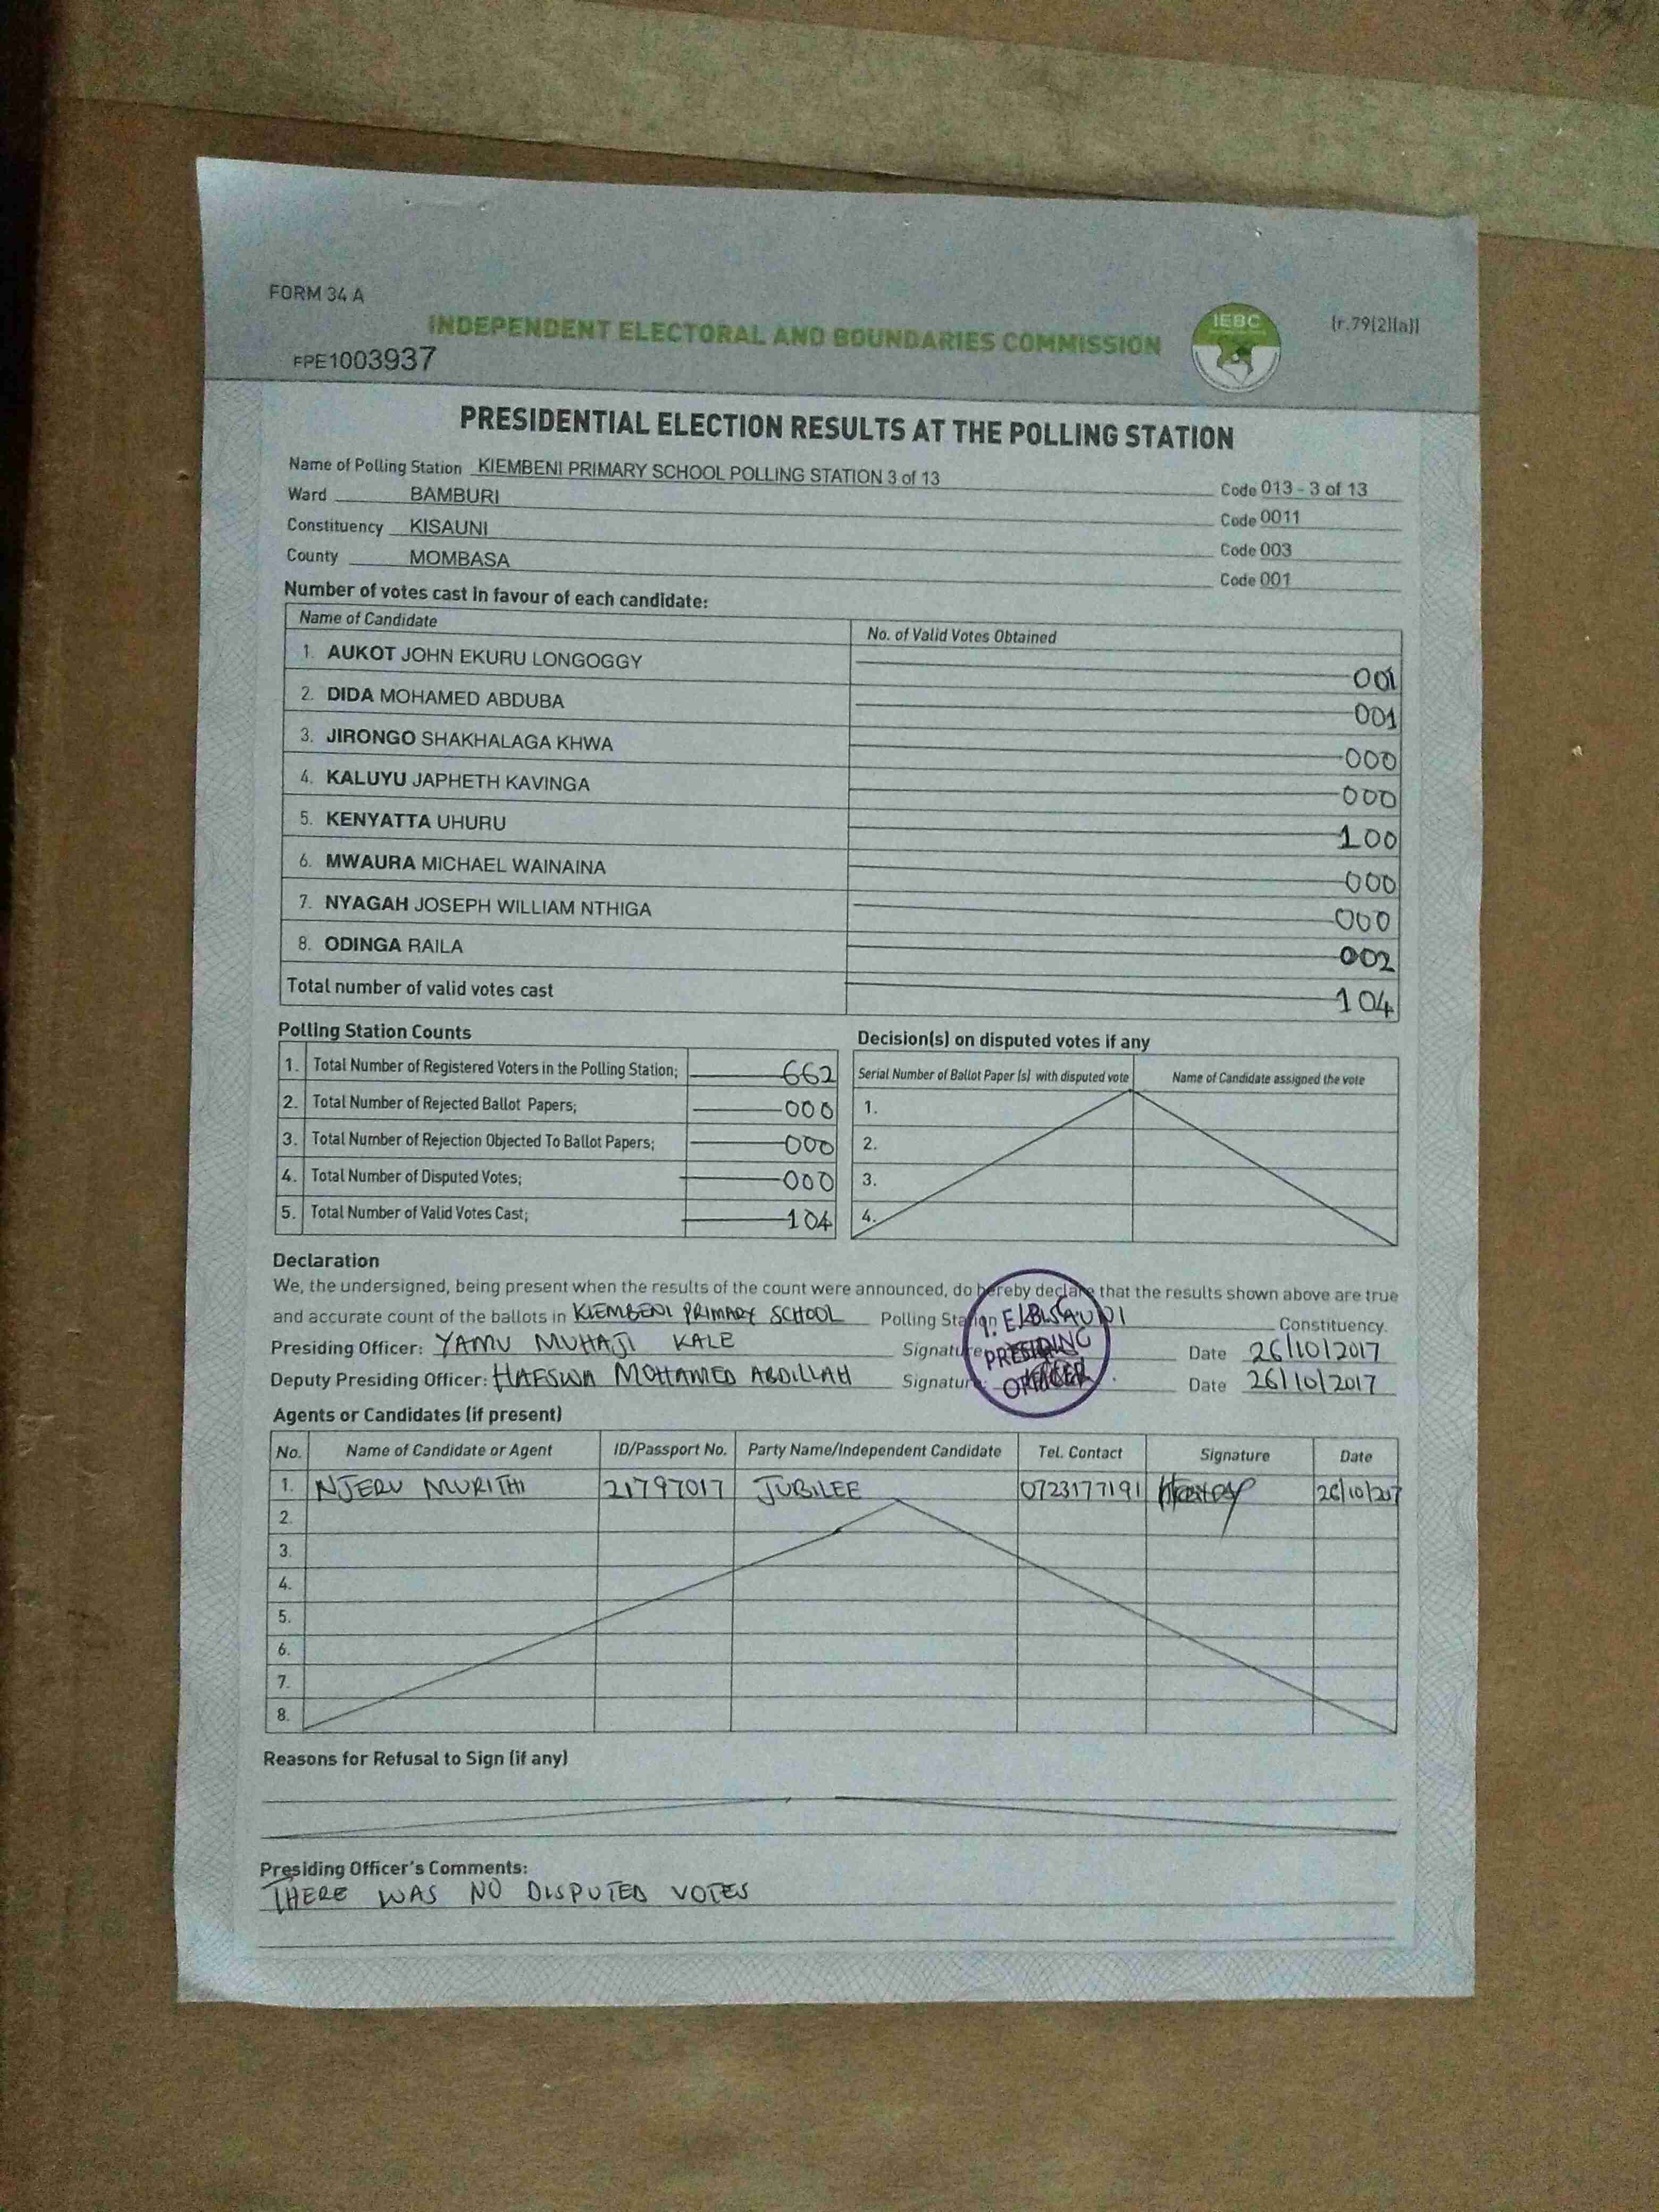 FORM 34 A
INDEPENDENT ELECTORAL AND BOUNDARIES COMMISSION
IEBC
(r.79(2)(a))
FPE1003937
PRESIDENTIAL ELECTION RESULTS AT THE POLLING STATION
Name of Polling Station KIEMBENI PRIMARY SCHOOL POLLING STATION 3 of 13 Code 013 - 3 of 13
Ward BAMBURI Code 0011
Constituency KISAUNI Code 003
County MOMBASA Code 001
Number of votes cast in favour of each candidate:
Name of Candidate No. of Valid Votes Obtained
1. AUKOT JOHN EKURU LONGOGGY 001
2. DIDA MOHAMED ABDUBA 001
3. JIRONGO SHAKHALAGA KHWA 000
4. KALUYU JAPHETH KAVINGA 000
5. KENYATTA UHURU 100
6. MWAURA MICHAEL WAINAINA 000
7. NYAGAH JOSEPH WILLIAM NTHIGA 000
8. ODINGA RAILA 002
Total number of valid votes cast 104
Polling Station Counts
1. Total Number of Registered Voters in the Polling Station; 662
2. Total Number of Rejected Ballot Papers; 000
3. Total Number of Rejection Objected To Ballot Papers; 000
4. Total Number of Disputed Votes; 000
5. Total Number of Valid Votes Cast; 104
Decision(s) on disputed votes if any
Serial Number of Ballot Paper (s) with disputed vote Name of Candidate assigned the vote
1.
2.
3.
4.
Declaration
We, the undersigned, being present when the results of the count were announced, do hereby declare that the results shown above are true
and accurate count of the ballots in KIEMBENI PRIMARY SCHOOL Polling Station KISAUNI Constituency.
Presiding Officer: YAMU MUHAJI KALE Signature Date 26/10/2017
Deputy Presiding Officer: HAFSWA MOHAMED ABDILLAH Signature: Date 26/10/2017
PRESIDING
OFFICER
Agents or Candidates (if present)
No. Name of Candidate or Agent ID/Passport No. Party Name/Independent Candidate Tel. Contact Signature Date
1. NJERU MURITHI 21797017 JUBILEE 0723177191 26/10/2017
2.
3.
4.
5.
6.
7.
8.
Reasons for Refusal to Sign (if any)
Presiding Officer's Comments:
THERE WAS NO DISPUTED VOTES